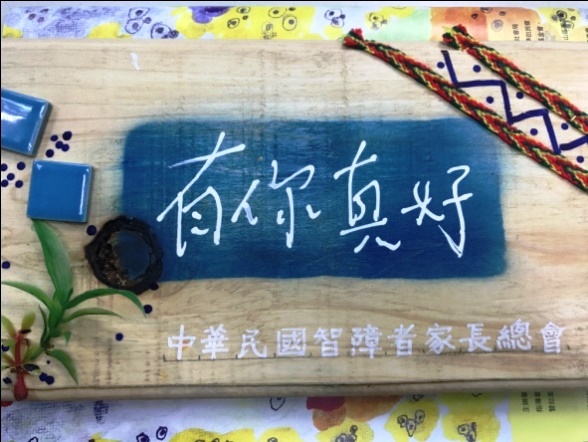 有你真好
中華民國智障者家長總會